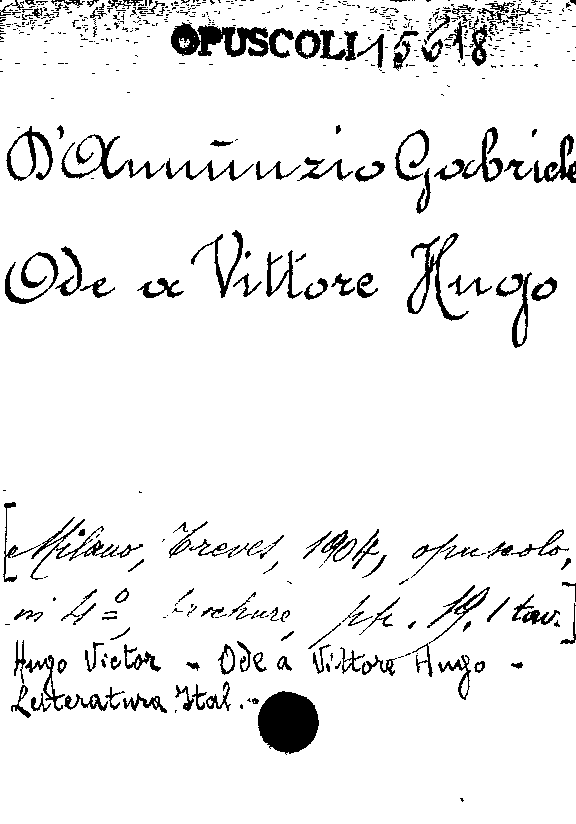 OPUSCOLI 15618
D'Annunzio Gabriele
Ode a Vittore Hugo
[Milano, Treves, 1904, opuscolo,
in 4º, brochure, pp. 19, 1 tav.]
Hugo Victor - Ode a Vittore Hugo -
Letteratura Ital. -